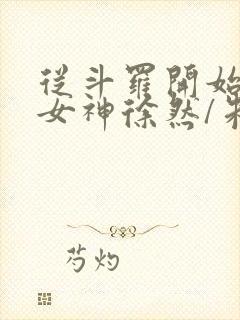 從斗羅開始
女神徐然/朱
芍灼